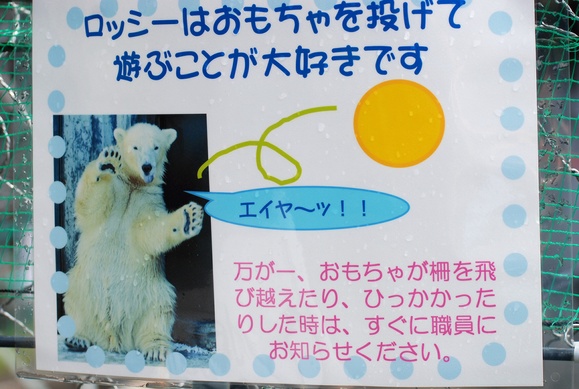 ロッシーはおもちゃを投げて
遊ぶことが大好きです
エイヤ〜ッ！！
万が一、おもちゃが柵を飛
び越えたり、ひっかかった
りした時は、すぐに職員に
お知らせください。